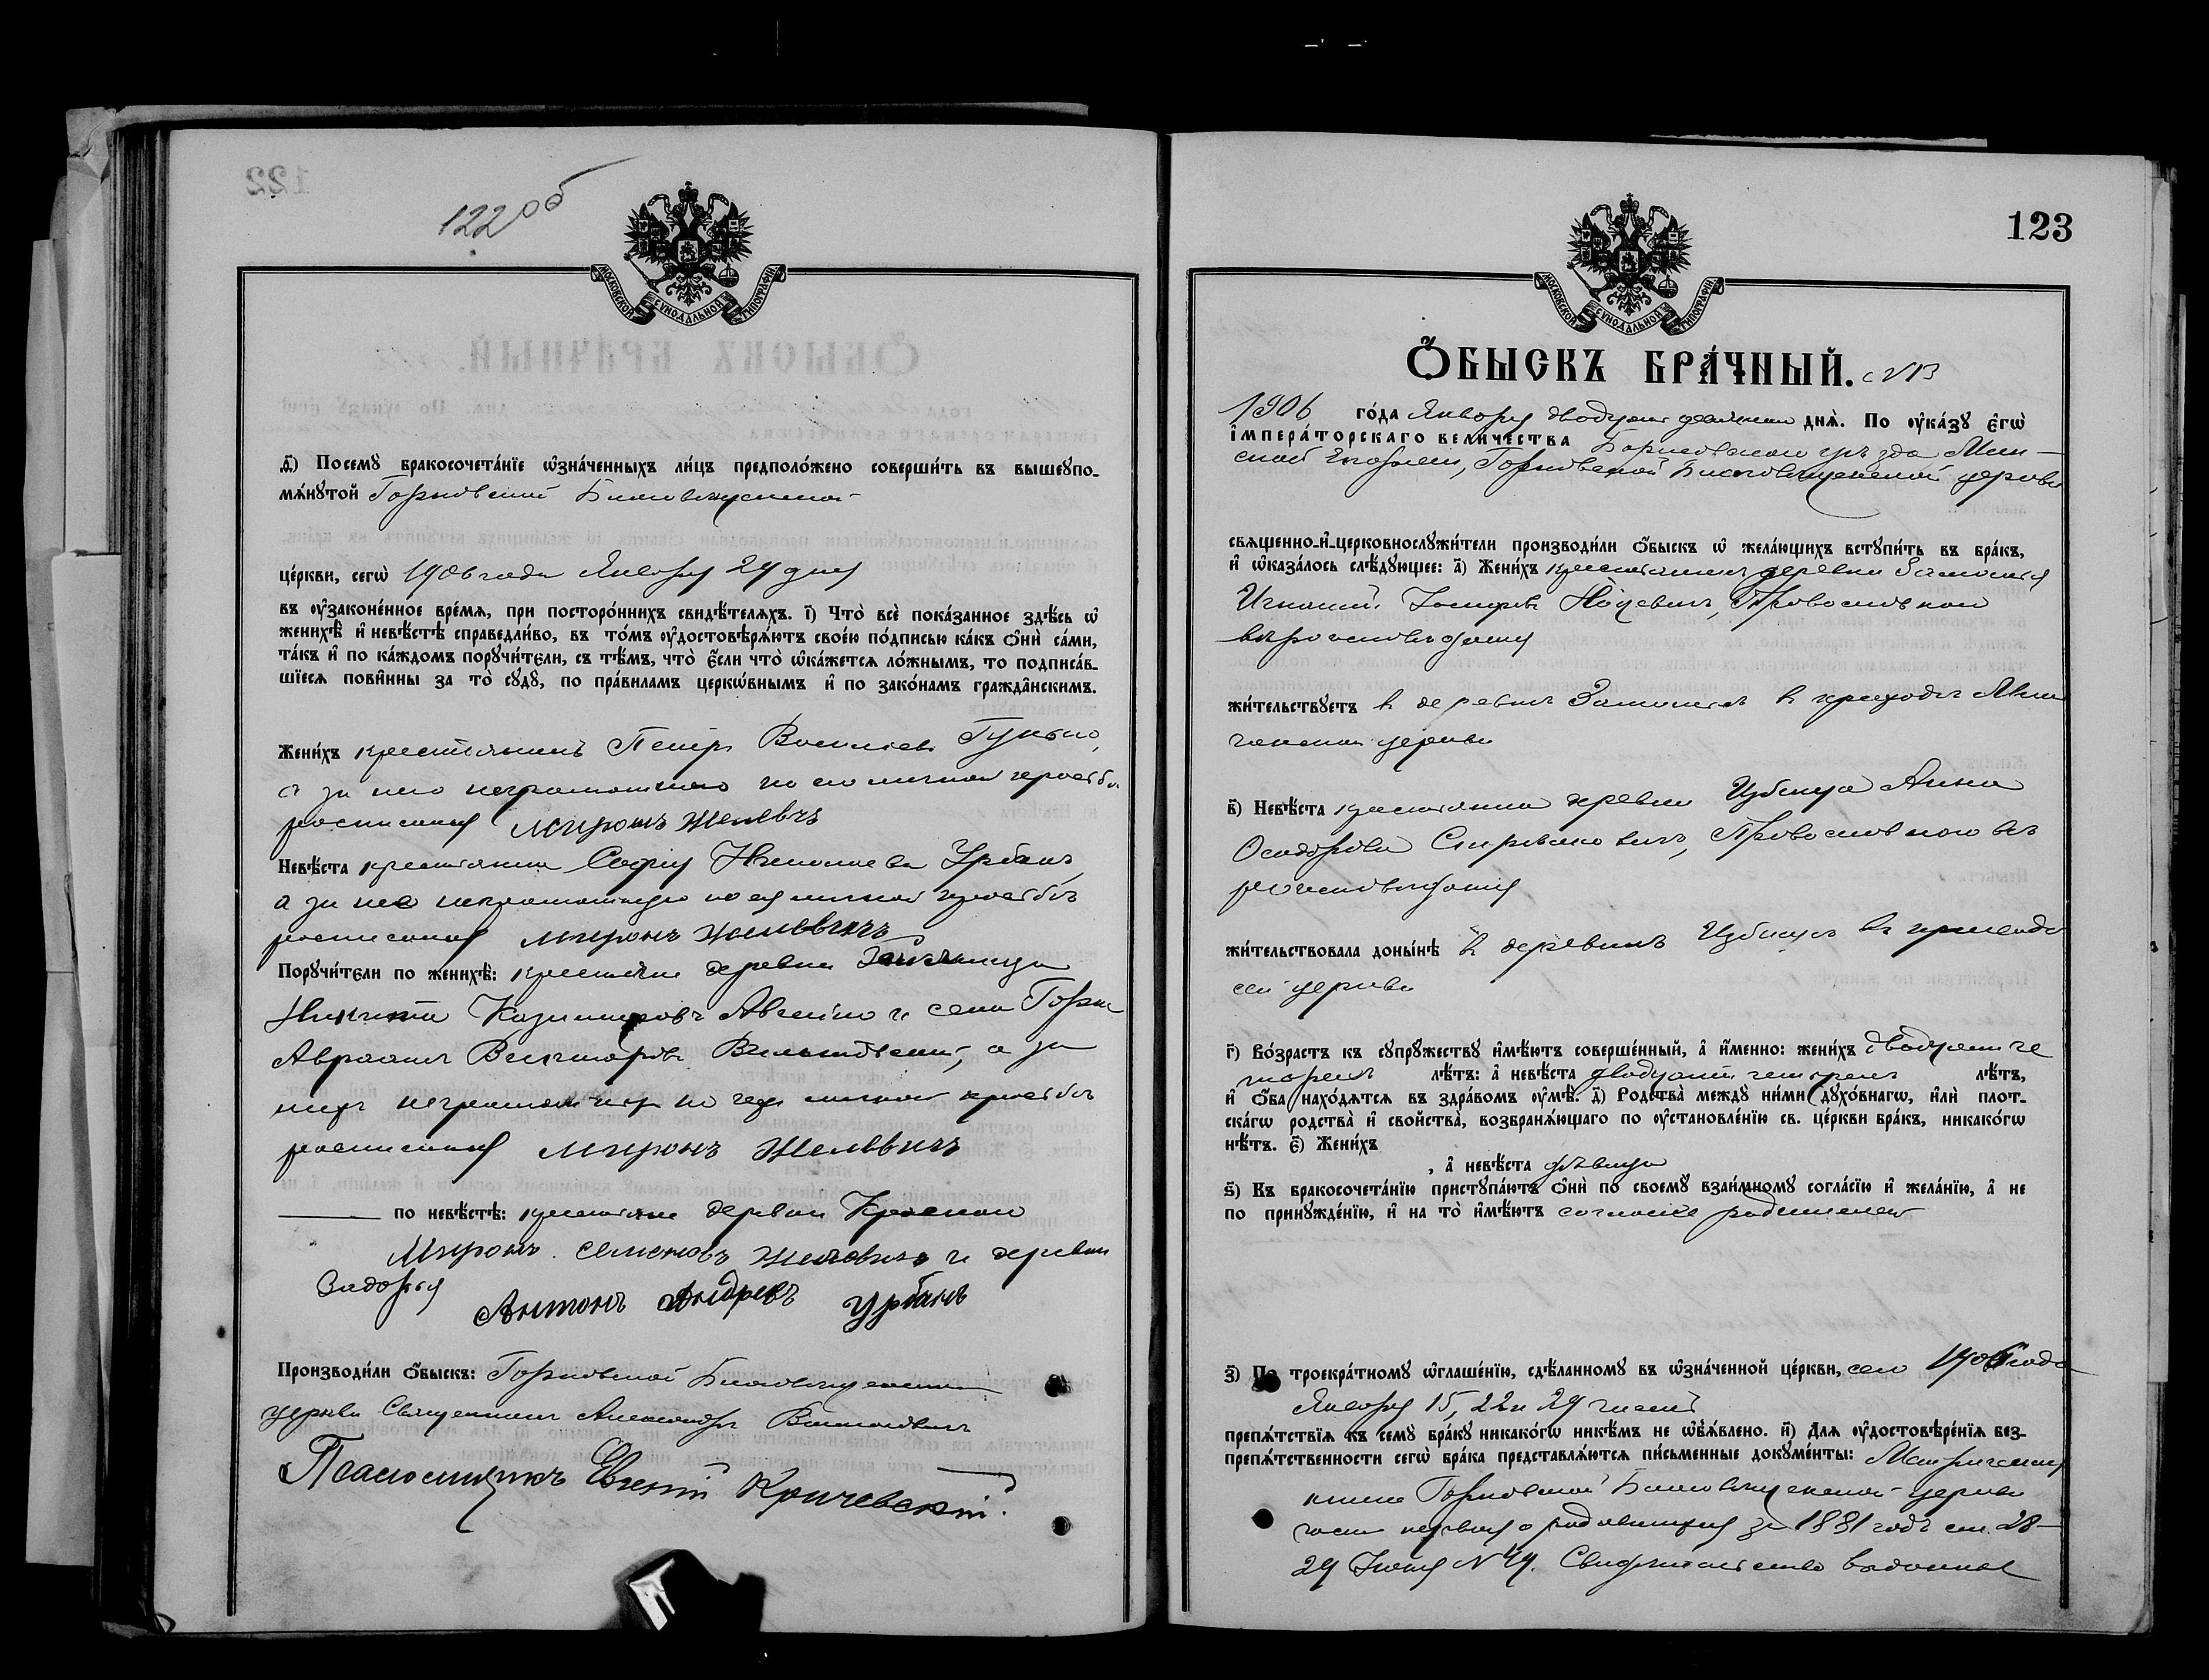 122 об
МОСКОВСКОЙ СУНОДАЛЬНОЙ ТИПОГРАФІИ
д҃і) Посемꙋ̀ бракосочета́нїе ѡ҆зна́ченныхъ ли́цъ предполо́жено соверши́ть въ вышеꙋпо-
мѧ́нꙋтой Горковской Благовѣщенской
це́ркви, сегѡ̀ 1906 года Января 29 дня
въ ᲂу҆законе́нное вре́мѧ, при посторо́ннихъ свидѣ́телѧхъ. і҃) Что̀ всѐ пока́занное здѣ́сь ѡ҆
женихѣ̀ и҆ невѣ́стѣ справедли́во, въ то́мъ ᲂу҆достовѣрѧ́ютъ свое́ю по́дписью ка́къ ѻ҆нѝ са́ми,
та́къ и҆ по ка́ждомъ порꙋчи́тели, съ тѣ́мъ, что̀ є҆́сли что̀ ѡ҆ка́жетсѧ ло́жнымъ, то подписа́в-
шїесѧ пови́нны за то̀ сꙋдꙋ̀, по пра́виламъ церкѡ́внымъ и҆ по зако́намъ гражда́нскимъ.
Жени́хъ крестьянинъ Петръ Васильевъ Гунько,
а за него неграмотнаго по его личной просьбѣ
росписался Миронъ Желевичъ
Невѣ́ста крестьянка Софія Николаева Урбанъ,
а за нее неграмотную по ея личной просьбѣ
росписался Миронъ Желевичъ
Порꙋчи́тели по женихѣ̀: крестьяне деревни
Никита Казимировъ и села Горки
Авраамъ Викторовъ а за
нихъ неграмотныхъ по ихъ личной просьбѣ
росписался Миронъ Желевичъ
по невѣ́стѣ: крестьяне деревни Красной
Миронъ Семеновъ Желевичъ и деревни
Задорья Антонъ Андревъ Урбанъ
Производи́ли ѻ҆́быскъ: Горковской Благовѣщенской
церкви Священникъ Александръ
Псаломщикъ Евгеній Кричевскій.
123
МОСКОВСКОЙ СУНОДАЛЬНОЙ ТИПОГРАФІИ
Ѻ҆БЫСКЪ БРА́ЧНЫЙ. №13
1906 го́да Января двадцать девятаго днѧ̀. По ᲂу҆ка́зꙋ є҆гѡ̀
і҆мпера́торскаго вели́чества Борисовскаго уѣзда Мин-
ской Епархіи, Горковской Благовѣщенской церкви
свѧщенно-и҆-церковнослꙋжи́тели производи́ли ѻ҆́быскъ ѡ҆ жела́ющихъ встꙋпи́ть въ бра́къ,
и҆ ѡ҆каза́лось слѣ́дꙋющее: а҃) Жени́хъ крестьянинъ деревни
Игнатій Іосифовъ Православнаго
вѣроисповѣданія
жи́тельствꙋетъ въ деревнѣ въ приходѣ
церкви
в҃) Невѣ́ста крестьянка деревни Избища Анна
Ѳеодорова Православнаго вѣ-
роисповѣданія
жи́тельствовала доны́нѣ въ деревнѣ Избищѣ въ приходѣ
сей церкви
г҃) Во́зрастъ къ сꙋпрꙋ́жествꙋ и҆мѣ́ютъ соверше́нный, а҆ и҆́менно: жени́хъ двадцати че-
тырехъ лѣ́тъ: а҆ невѣ́ста двадцати четырехъ лѣ́тъ,
и҆ ѻ҆́ба нахо́дѧтсѧ въ здра́вомъ ᲂу҆мѣ̀. д҃) Родства̀ междꙋ ни́ми дꙋхо́внагѡ, и҆лѝ плот-
ска́гѡ родства̀ и҆ сво́йства̀, возбранѧ́ющаго по ᲂу҆становле́нїю св. це́ркви бра́къ, никако́гѡ
нѣ́тъ. є҃) Жени́хъ
, а҆ невѣ́ста дѣвица
ѕ҃) Къ бракосочета́нїю пристꙋпа́ютъ ѻ҆нѝ по своемꙋ̀ взаи́мномꙋ согла́сїю и҆ жела́нїю, а҆ не
по принꙋжде́нїю, и҆ на то̀ и҆мѣ́ютъ согласіе родителей
з҃) По троекра́тномꙋ ѡ҆глаше́нїю, сдѣ́ланномꙋ въ ѡ҆зна́ченной це́ркви, сего 1906 года
Января 15, 22 и 29 чиселъ
препѧ́тствїѧ къ семꙋ̀ бра́кꙋ никако́гѡ никѣ́мъ не ѡ҆б̾ѧ́влено. и҃) Длѧ ᲂу҆достовѣре́нїѧ без-
препѧ́тственности сегѡ̀ бра́ка представлѧ́ютсѧ пи́сьменные докꙋме́нты: Метрическая
книга Горковской Благовѣщенской церкви
часть первая о родившихся за 1881 годъ ст. 28-
29 Іюня №49. Свидѣтельство выданное